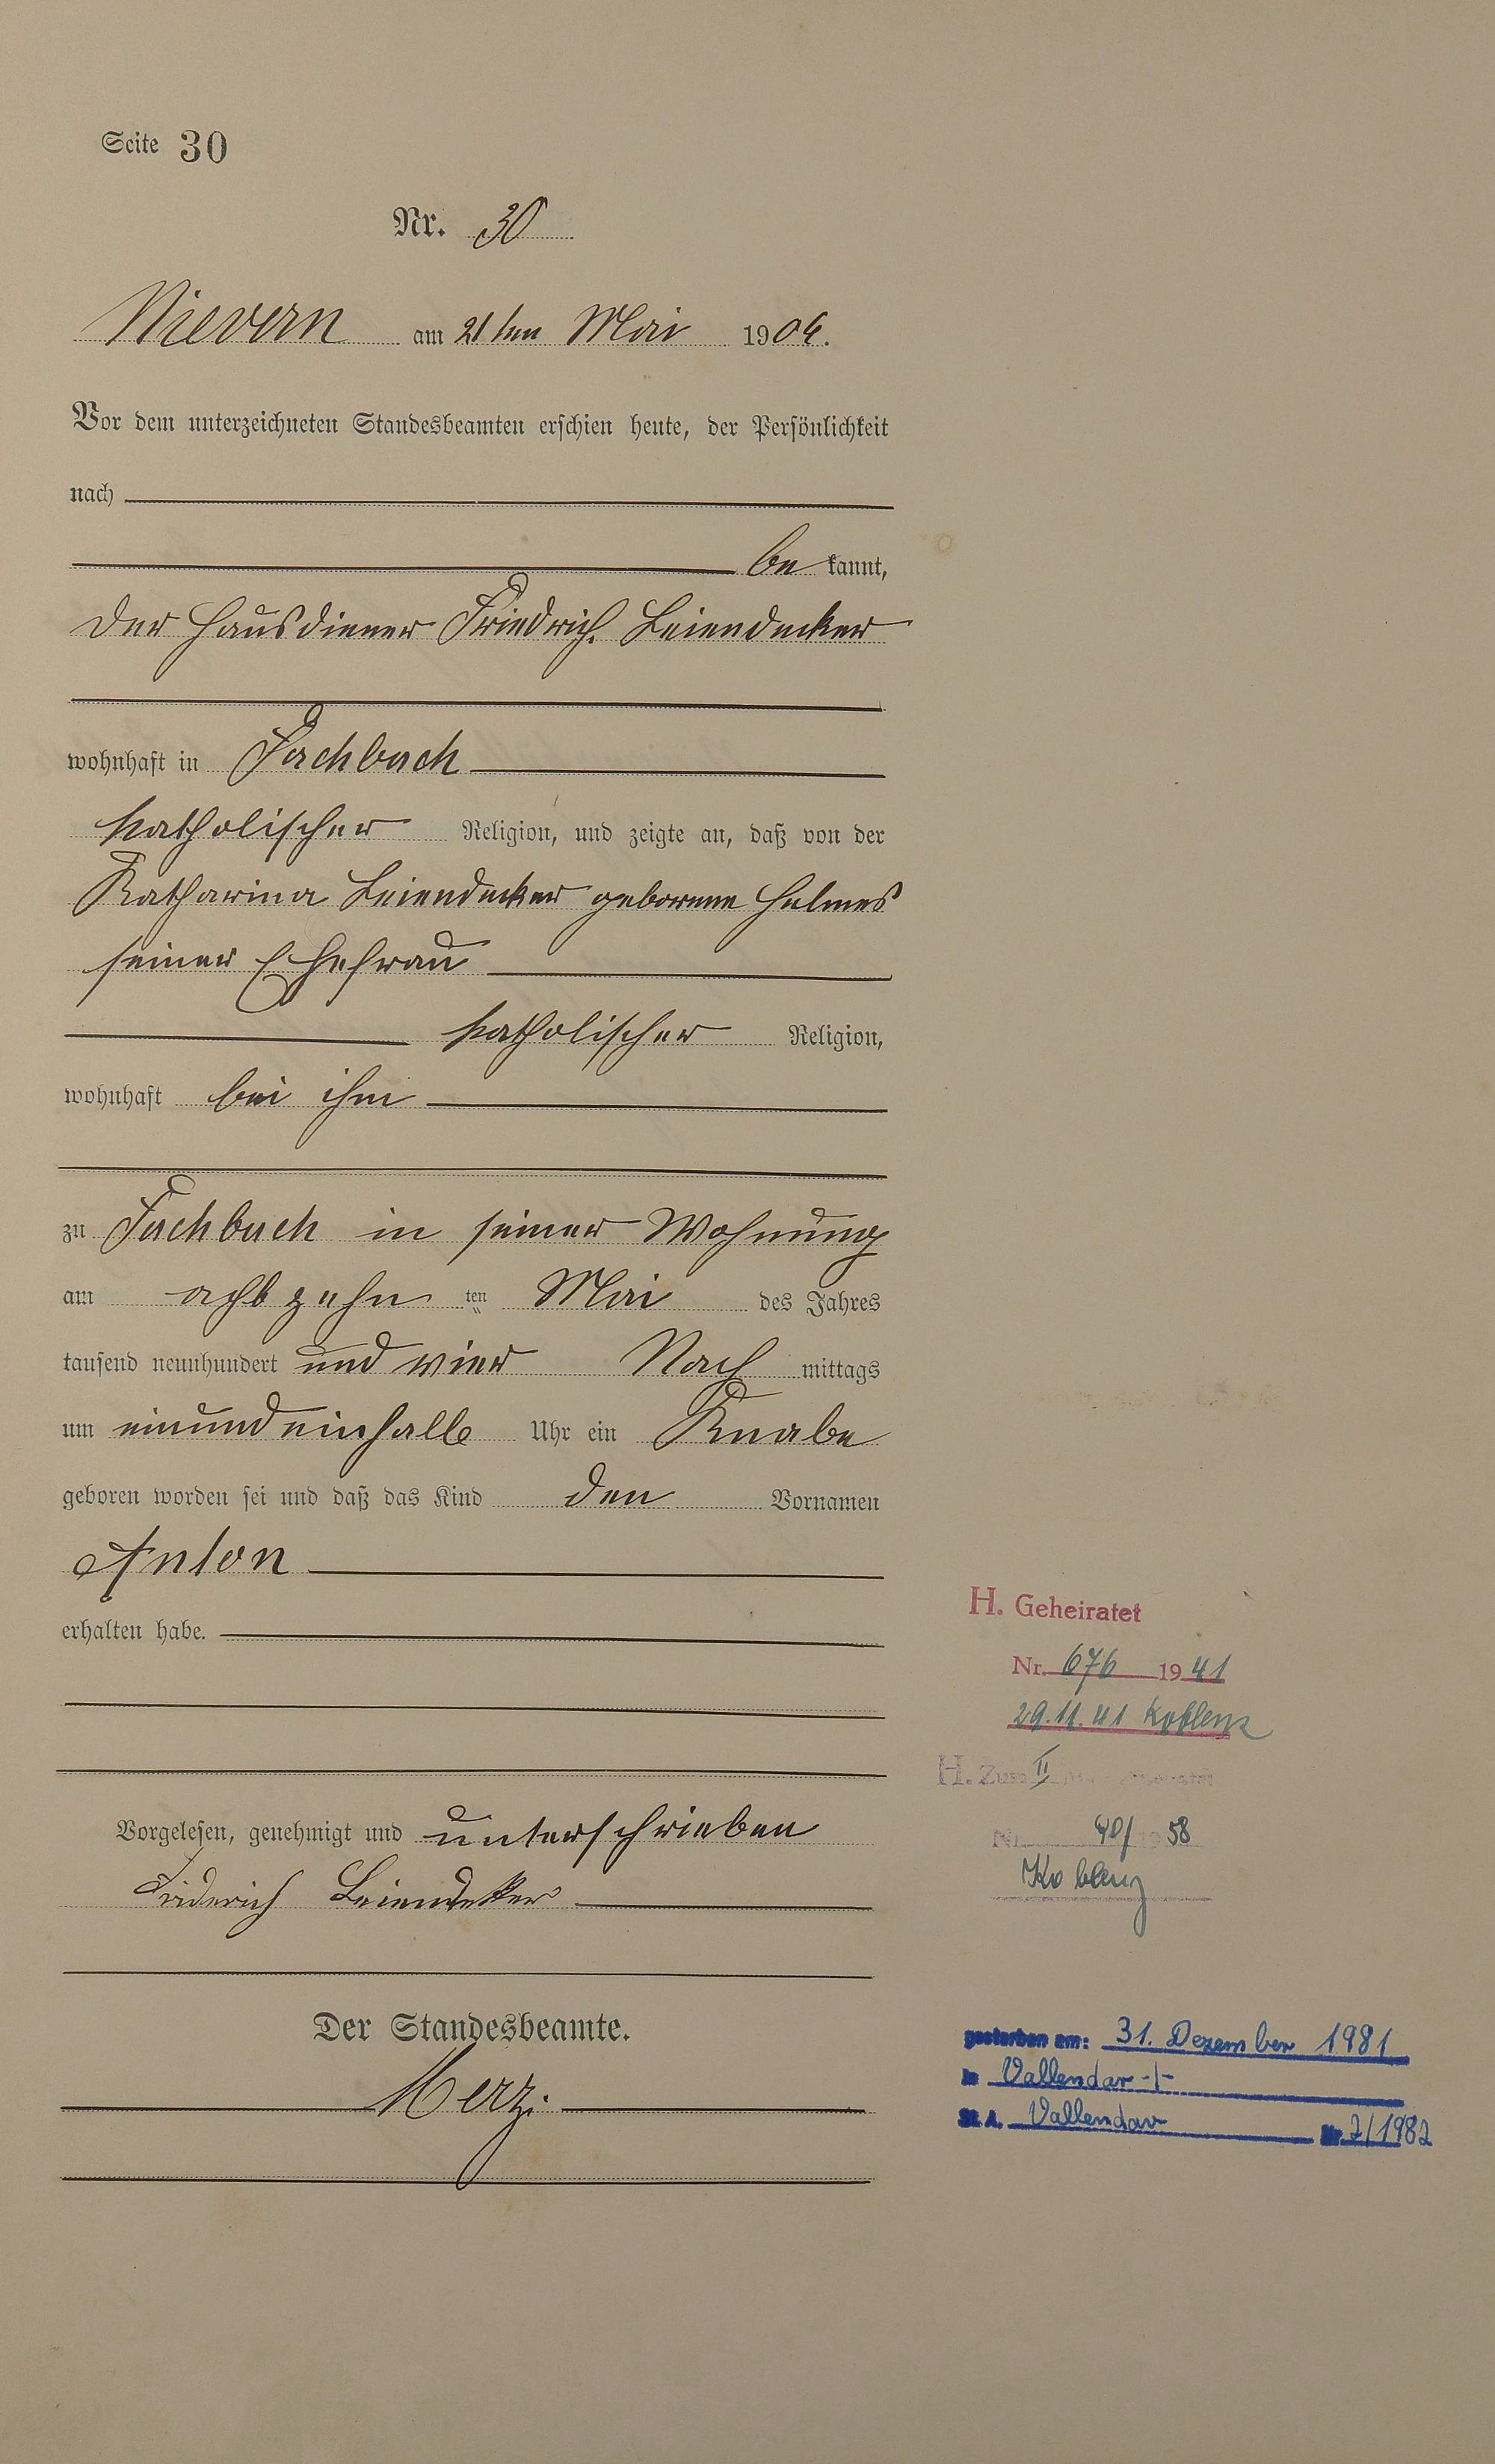 Seite 30
Nr. 30
Nievern am 21ten Mai 1904.
Vor dem unterzeichneten Standesbeamten erschien heute, der Persönlichkeit
nach
be kannt,
der Hausdiener Friedrich Leiendecker
wohnhaft in Fachbach
katholischer Religion, und zeigte an, daß von der
Katharina Leiendecker geborene Helmes
seiner Ehefrau
katholischer Religion,
wohnhaft bei ihm
zu Fachbach in seiner Wohnung
am achtzehn ten Mai des Jahres
tausend neunhundert und vier Nach mittags
um einundeinhalb Uhr ein Knabe
geboren worden sei und daß das Kind den Vornamen
Anton
erhalten habe.
Vorgelesen, genehmigt und unterschrieben
Friderich Leiendecker
Der Standesbeamte.
Merz.
H. Geheiratet
Nr. 676 1941
29.11.41 Koblenz
H. II
Nr. 40/1958
Koblenz
gestorben am: 31. Dezember 1981
in Vallendar
St. A. Vallendar Nr. 2/1982